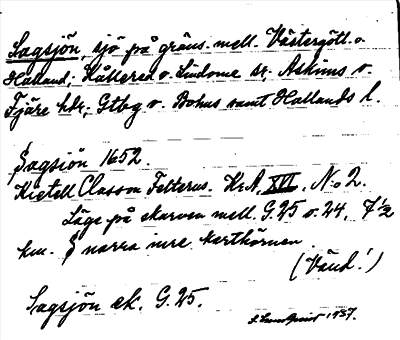 Sagsjön, sjö på gräns. mell. Västergötl. o.
Halland; Kållered o. Lindome sr. Askims o.
Fjäre hdr; Gtbg o. Bohus samt Hallands l.
Sagsjön 1652.
Kietell Classon Felterus. K.A. XVI, No 2.
Läge på skarven mell. G.25 o. 24, 7½
km. f norra inre karthörnen.
(Vänd!)
Sagsjön ek. G.25.
1937.